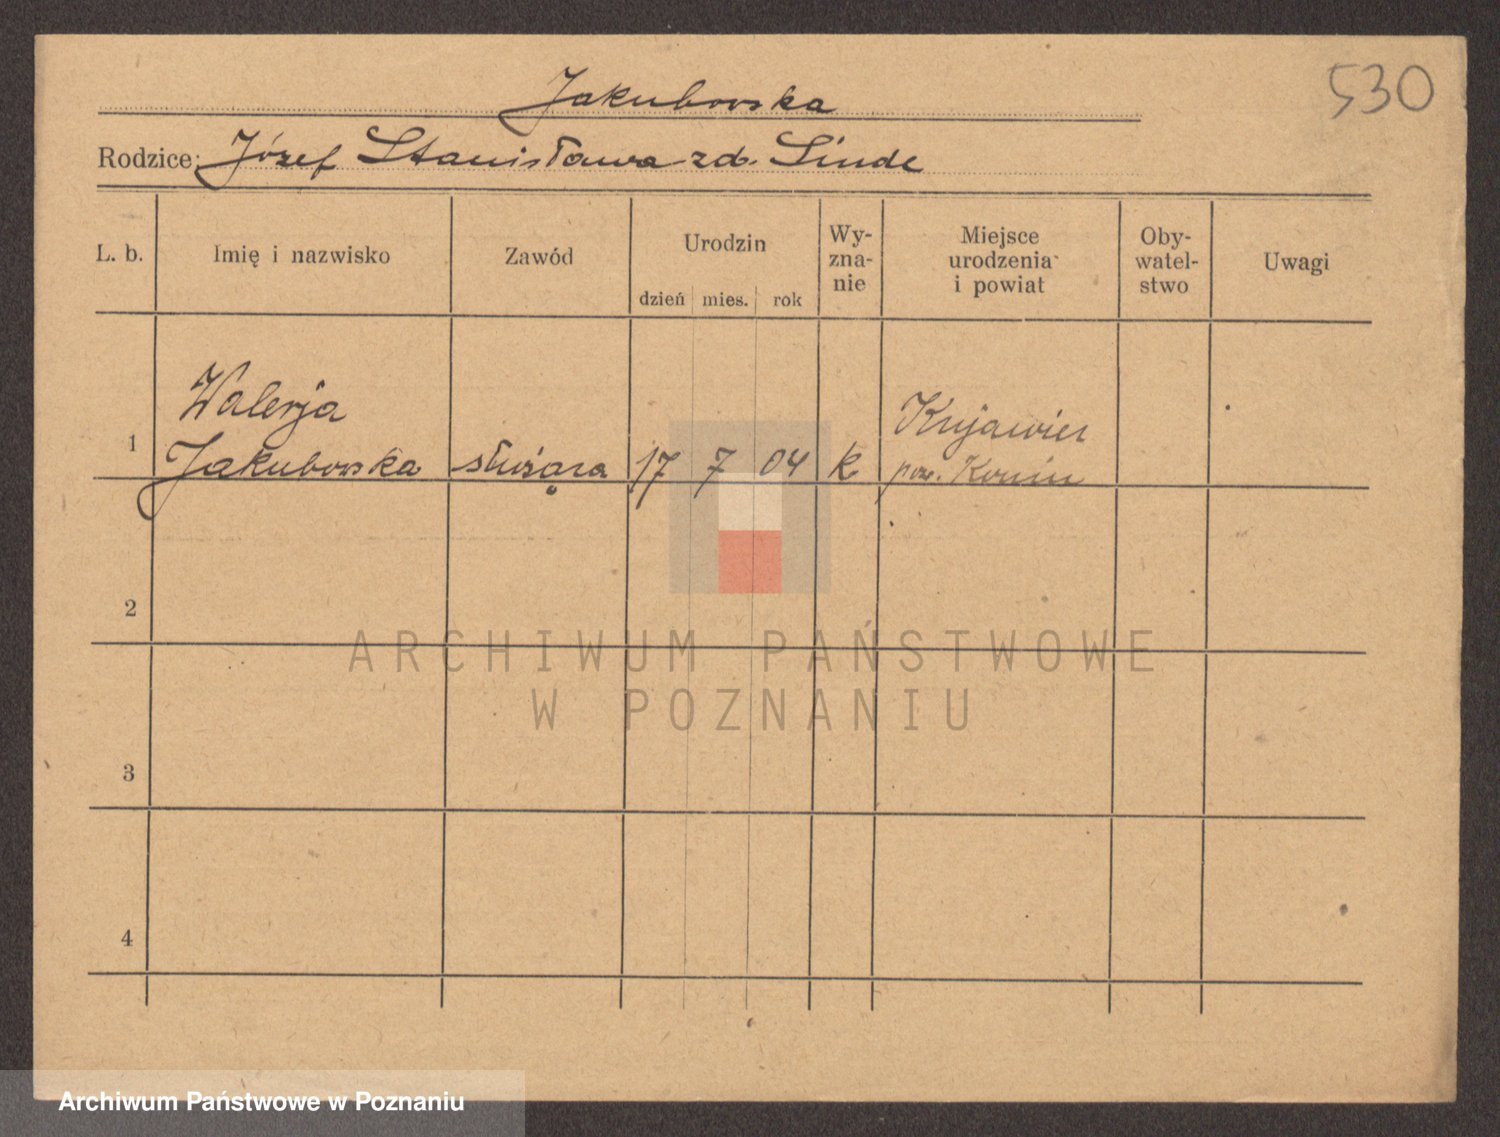 530
Jakubowska
Rodzice: Józef Stanisława zd. Linde
L. b.
Imię i nazwisko
Zawód
Urodzin
dzień mies. rok
Wy-
zna-
nie
Miejsce
urodzenia
i powiat
Oby-
watel-
stwo
Uwagi
1
Walerja
Jakubowska
służąca
17 7 04
k
Kujawiec
pow. Konin
2
3
4
ARCHIWUM PAŃSTWOWE
W POZNANIU
Archiwum Państwowe w Poznaniu